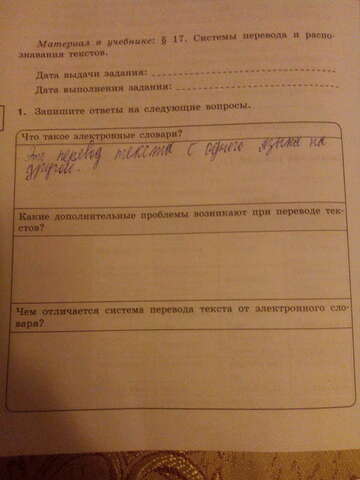 Материал в учебнике: § 17. Системы перевода и распо-
знавания текстов.
Дата выдачи задания:
Дата выполнения задания:
1. Запишите ответы на следующие вопросы.
Что такое электронные словари?
Это перевод текста с одного языка на
другой.
Какие дополнительные проблемы возникают при переводе тек-
стов?
Чем отличается система перевода текста от электронного сло-
варя?